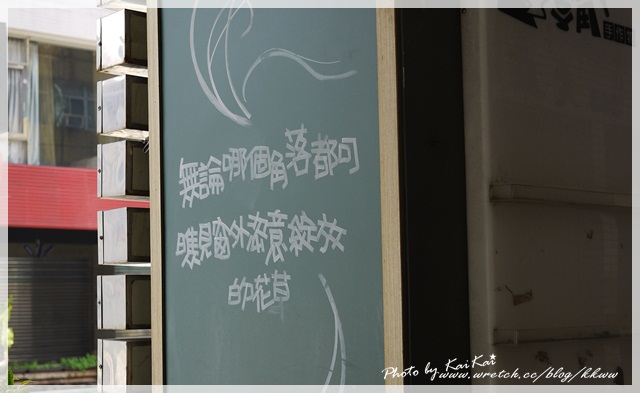 無論哪個角落都可
瞧見窗外恣意綻放
的花草
Photo by KaiKai
www.wretch.cc/blog/kkww